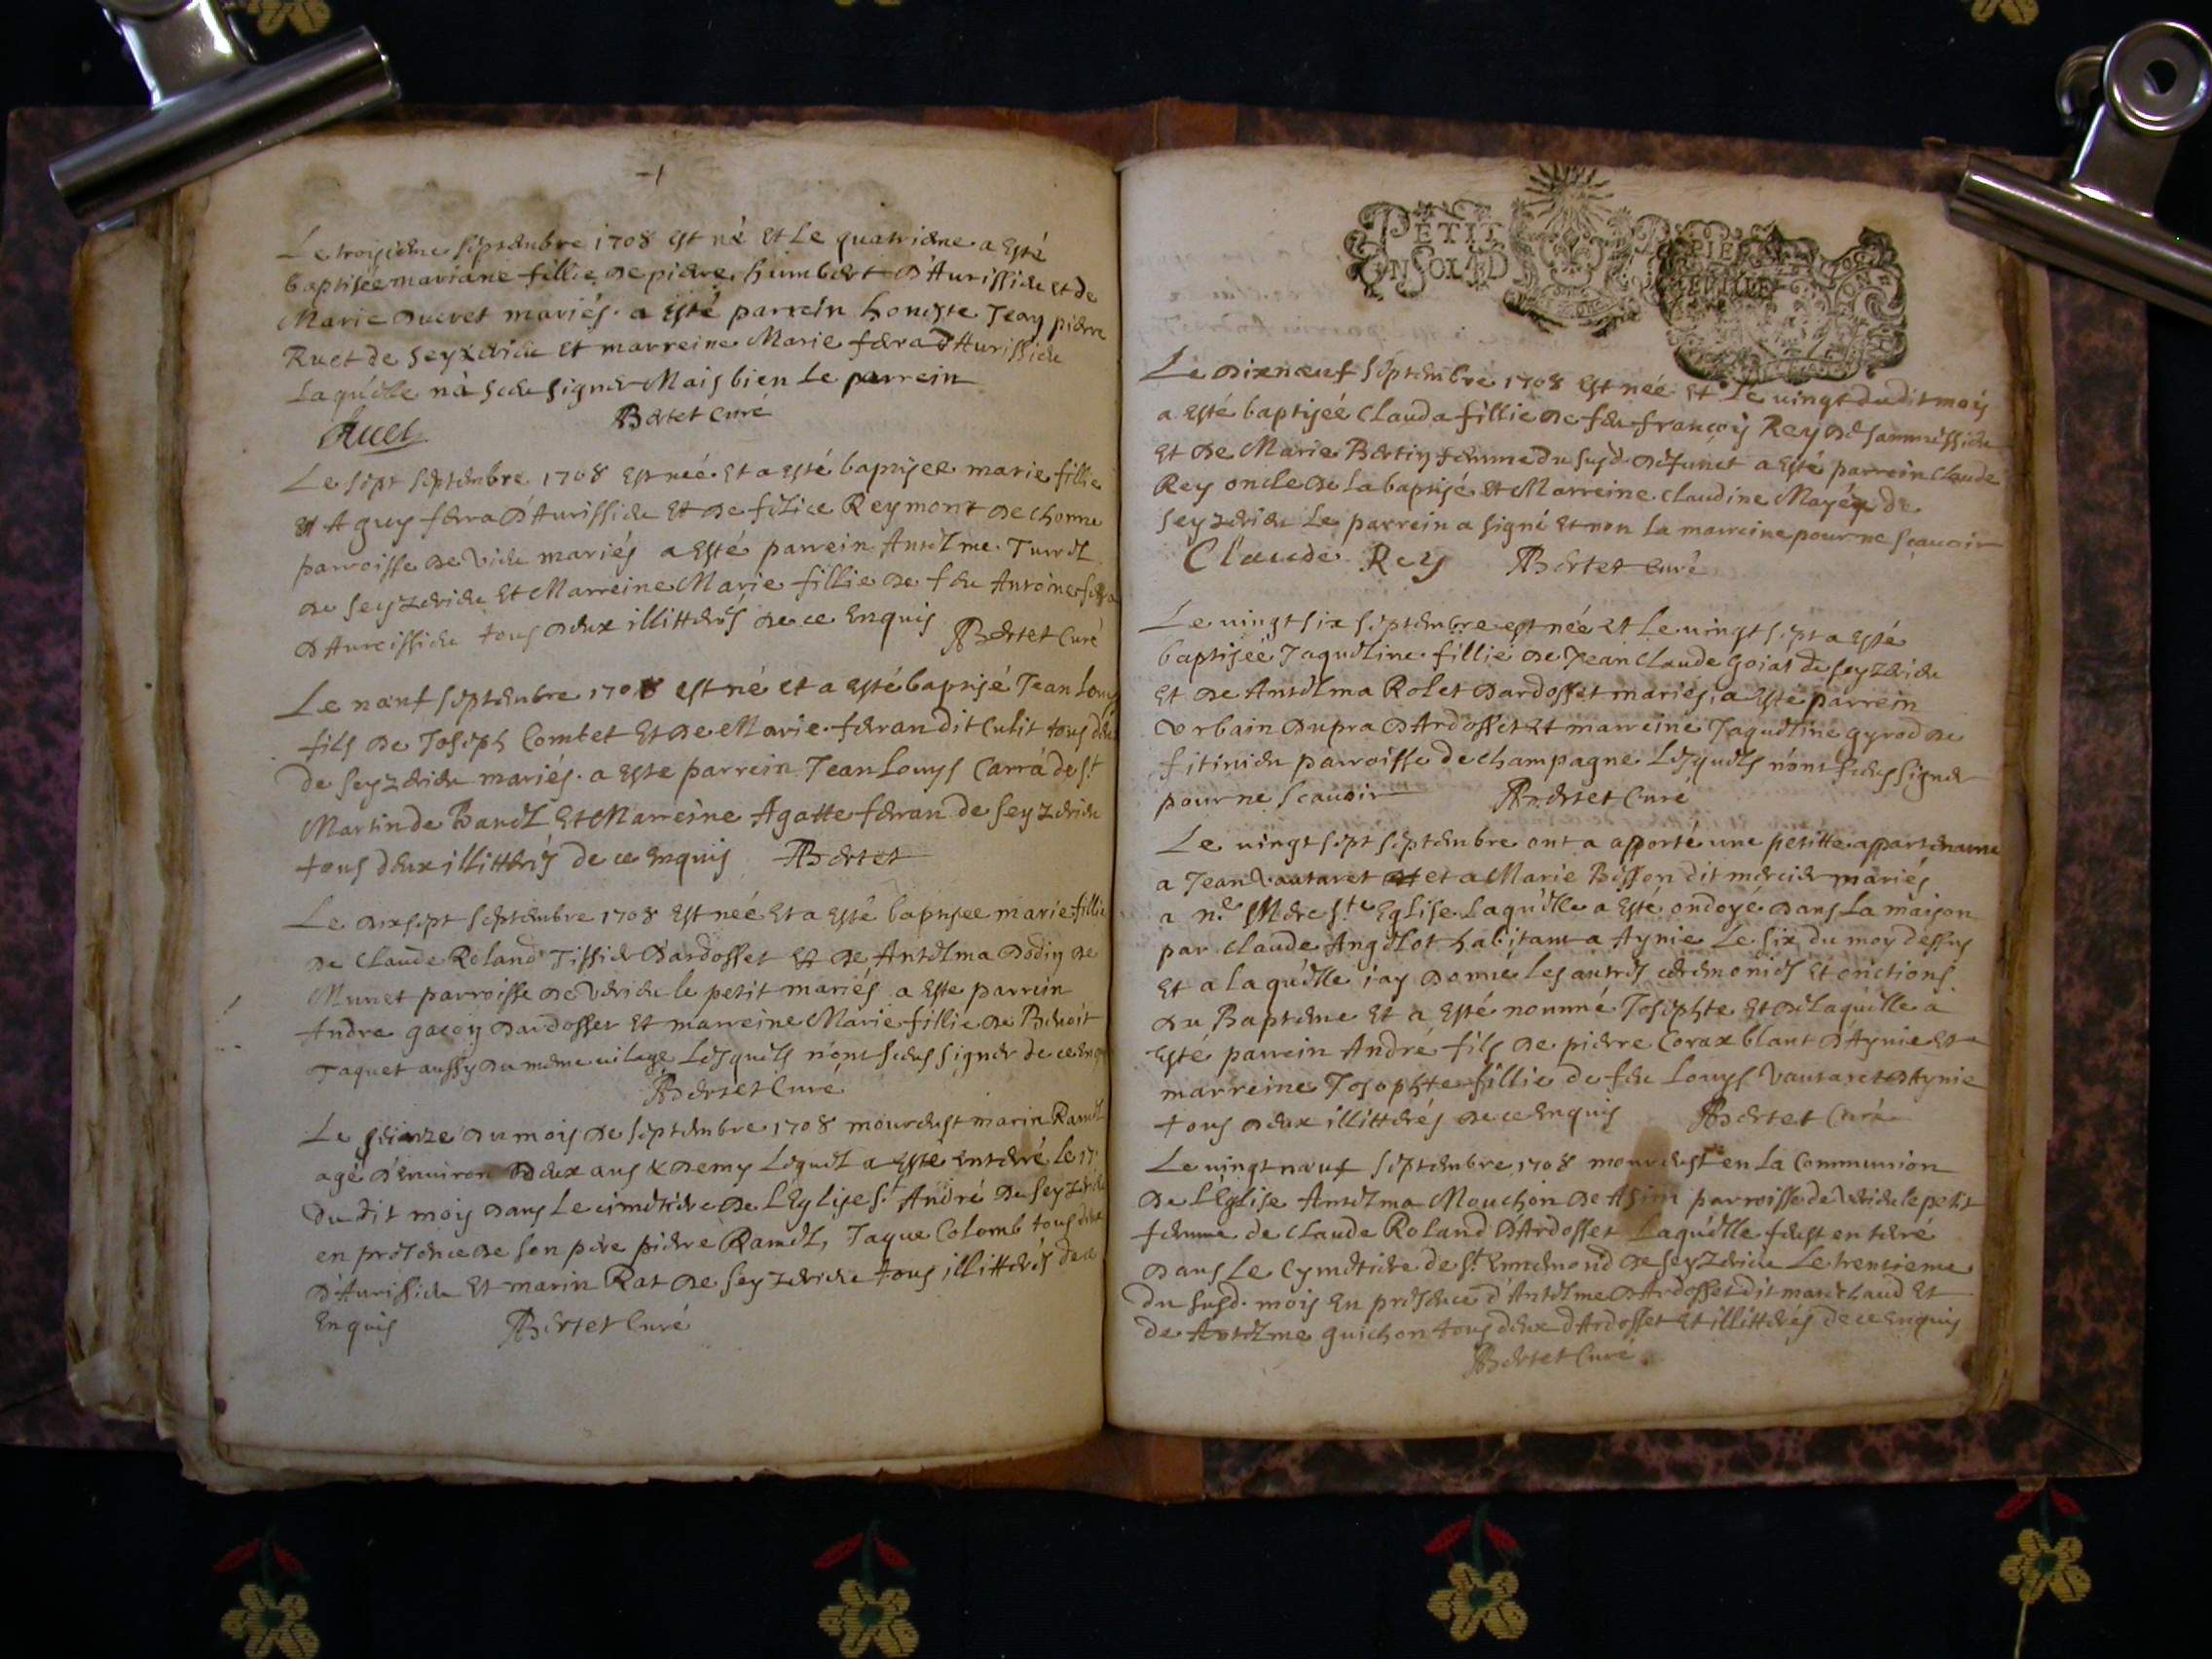 Le troisieme septembre 1708 est né et le quatrieme a esté
baptisée mariane fillie de pierre humbert d'Aurissieu et de
Marie Ducret mariés. a esté parrein honeste Jean pierre
Ruet de Seyzerieu et marreine Marie ferra d'Aurissieu
laquelle n'a sceu signer Mais bien le parrein
Ruet Bertet Curé
Le sept septembre 1708 est née et a esté baptisee marie fillie
et Aguy ferra d'Aurissieu et de felice Reymont de chonne
parroisse de vieu mariés a esté parrein Antelme Turrel
de seyzerieu et Marreine Marie fillie de feu Antoine ferra
d'Aureissieu tous deux illitterés de ce enquis Bertet Curé
Le neuf septembre 1708 est né et a esté baptisé Jean Louys
fils de Joseph Combet et de Marie ferran dit Culit tous deux
de seyzerieu mariés. a este parrein Jean Louys Carrà de St
Martin de Bavel et Marreine Agatte ferran de seyzerieu
tous deux illitterés de ce enquis Bertet
Le dixsept septembre 1708 est née et a esté baptisee marie fillie
de Claude Roland Tissier d'ardosset et de Antelma dodin de
Munet parroisse de verieu le petit mariés a este parrein
Andre gacoy dardosset et marreine Marie fillie de Benoit
Jaquet aussy du meme vilage lesquels n'ont sceus signer de ce enq
Bertet Curé
Le du mois de septembre 1708 mourust marin Ramel
agé d'environ deux ans & demy lequel a este enterré le 17
du dit mois dans le cimetiere de l'Eglise St André de seyzerieu
en presence de son pere pierre Ramel, Jaque Colomb tous deux
d'Aurissieu et marin Rat de seyzerieu tous illitterés de ce
enquis Bertet Curé
PETIT PAPIER
UN SOL 4 D
Le dixneuf septembre 1708 est née et le vingt du dit mois
a esté baptiseé Clauda fillie de feu françois Rey de sammessieu
et de Marie Bertin femme du susd. defunct a esté parrein Claude
Rey oncle de la baptisé et Marreine Claudine Mayéq de
seyzerieu le parrein a signé et non la marreine pour ne scavoir
Claude Rey Bertet Curé
Le vingt six septembre est née et le vingt sept a esté
baptisée Jaqueline fillie de Jean Claude Gojat de seyzerieu
et de Antelma Rolet dardosset mariés, a esté parrein
Urbain Dupra d'Ardosset et marreine Jaqueline gyrod de
fitinieu parroisse de champagne lesquels n'ont sceus signer
pour ne scavoir Bertet Curé
Le vingt sept septembre ont a apporté une petitte appartenante
a Jean Vautaret et a Marie Bisson dit mercier mariés
a n.e Mere S.te Eglise laquelle a esté ondoyé dans la maison
par Claude Angelot habitant a Aynie le six du moy dessus
et a laquelle j'ay donné les autres ceremonies et onctions
du Bapteme et a esté nommé Josephte et de laquelle a
esté parrein André fils de pierre Corax blanc d'Aynie et
marreine Josephte fillie de feu Louys Vautaret d'Aynie
tous deux illitterés de ce enquis Bertet Curé
Le vingt neuf septembre 1708 mourust en la Communion
de l'Eglise Antelma Mouchon de Asim parroisse de verieu le petit
femme de Claude Roland d'Ardosset laquelle feust enterré
dans le Cymetiere de St Ennemond de seyzerieu le trentieme
du susd. mois en presence d'Antelme d'Ardosset dit marechaud et
de Antelme guichon tous deux d'Ardosset et illitterés de ce enquis
Bertet Curé